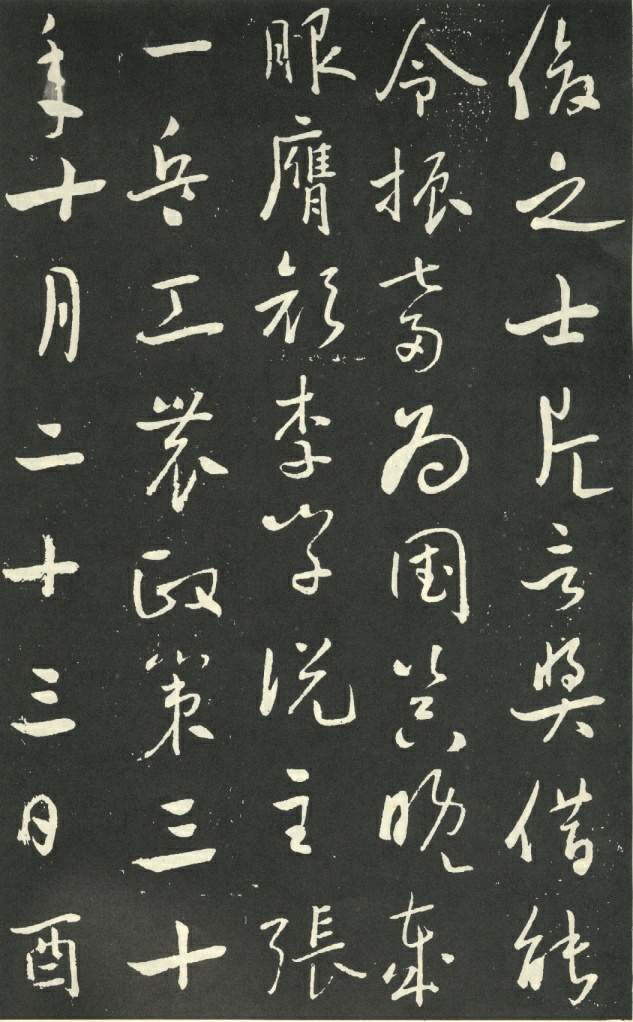 俊之士片言奬借能
令振奮為國晚歲
服膺顏李學說主張
一兵工農政策三十
年十月二十三日酉